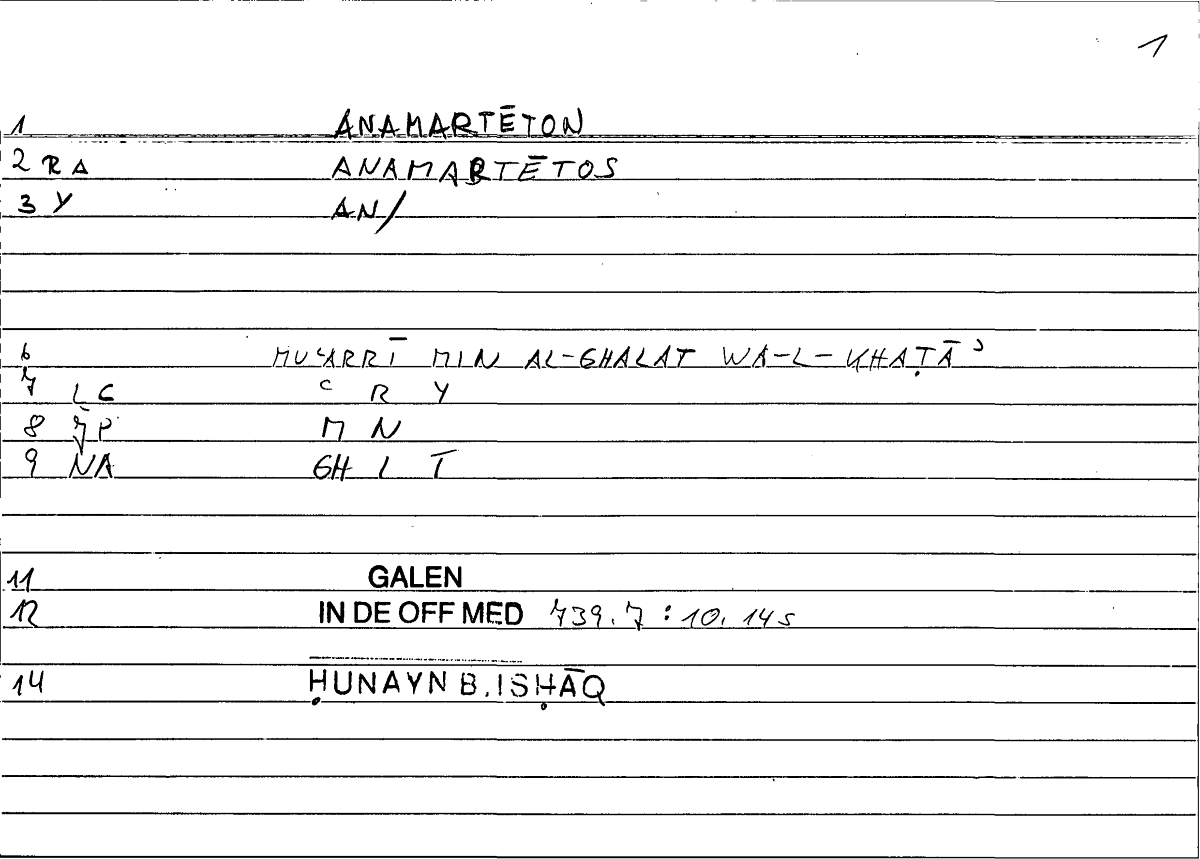 1
1 ANAMARTĒTON
2 RA ANAMARTĒTOS
3 Y AN/
6 MUʿARRĪ MIN AL-GHALAT WA-L-KHAṬĀʾ
7 LC ʿ R Y
8 JP M N
9 NA GH L T
11 GALEN
12 IN DE OFF MED 739.7 : 10.14s
14 ḤUNAYN B. ISḤĀQ